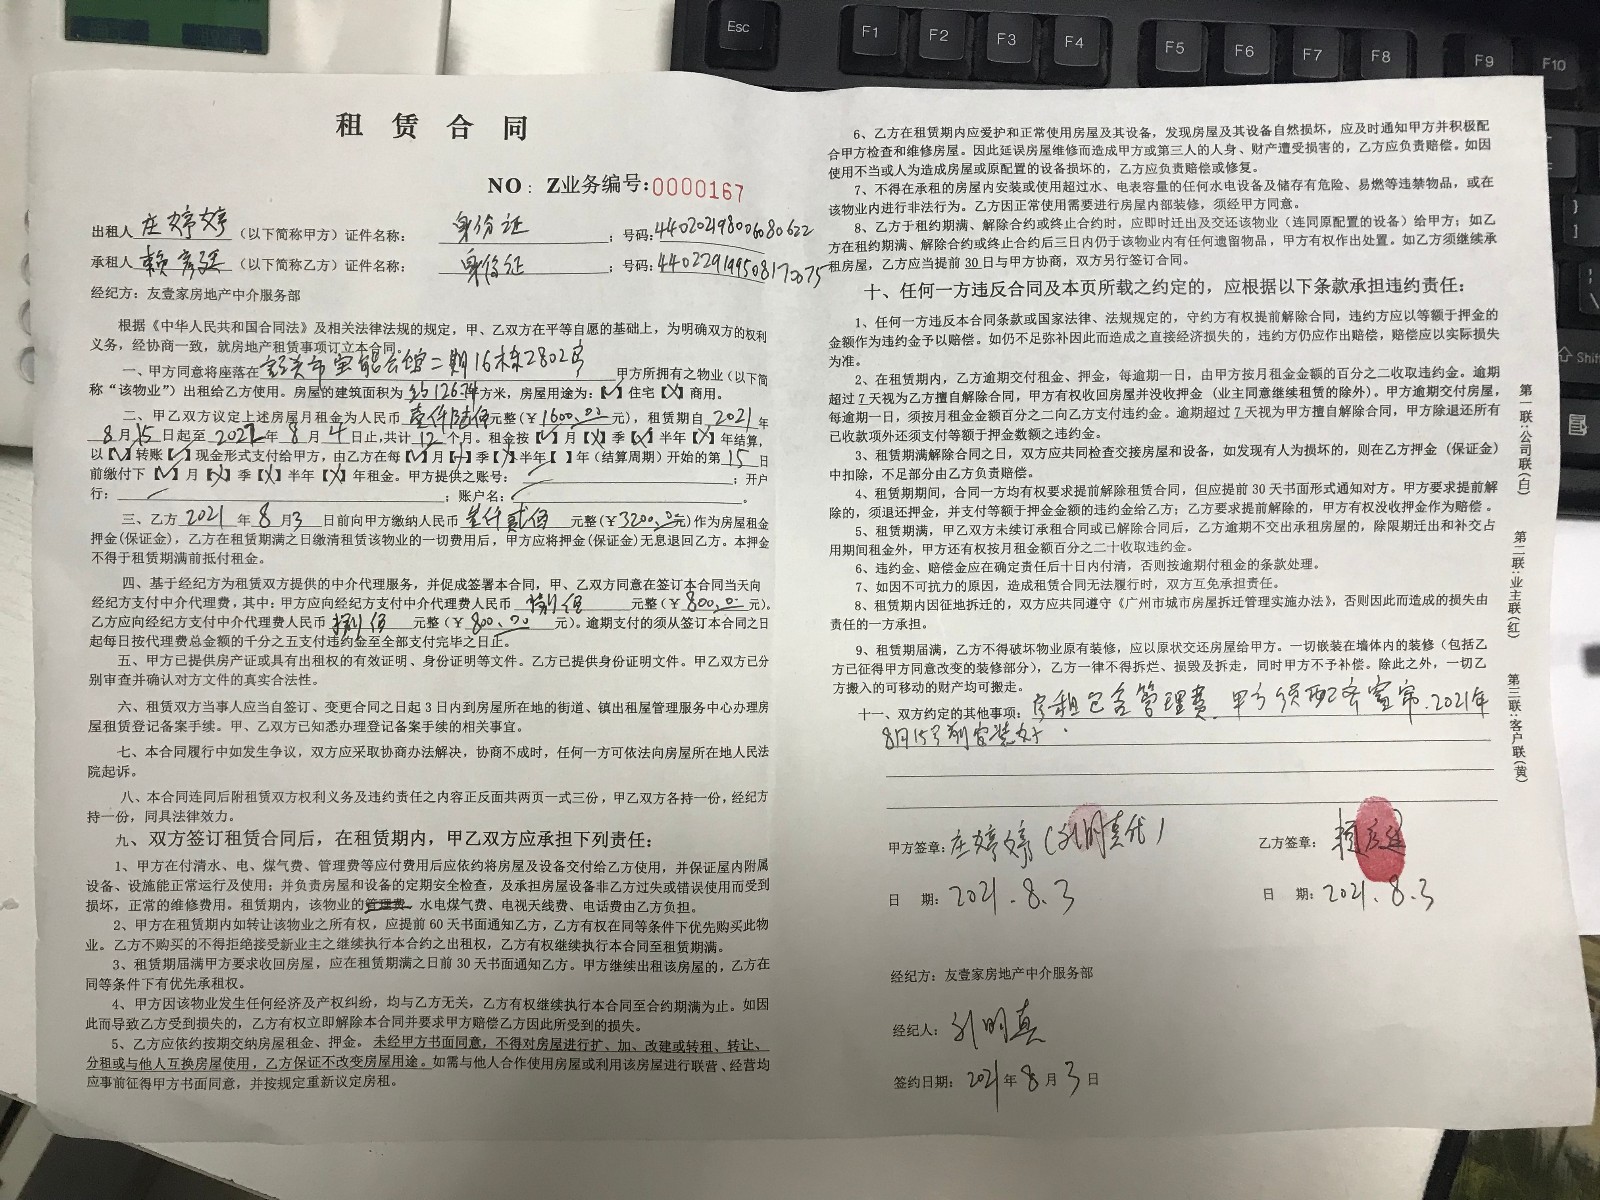 租赁合同
NO：Z业务编号:0000167
出租人 庄婷婷 （以下简称甲方）证件名称： 身份证 ；号码:440202198006080622
承租人 赖彦廷 （以下简称乙方）证件名称： 身份证 ；号码:440229199508170075
经纪方：友壹家房地产中介服务部
根据《中华人民共和国合同法》及相关法律法规的规定，甲、乙双方在平等自愿的基础上，为明确双方的权利
义务，经协商一致，就房地产租赁事项订立本合同。
一、甲方同意将座落在 韶关市宝能会馆二期16栋2802房 甲方所拥有之物业（以下简
称“该物业”）出租给乙方使用。房屋的建筑面积为 约126.74 方米，房屋用途为：【√】住宅【X】商用。
二、甲乙双方议定上述房屋月租金为人民币 壹仟陆佰 元整（￥1600.00元），租赁期自 2021 年
8 月 15 日起至 2022 年 8 月 4 日止,共计 12 个月。租金按【√】月【X】季【X】半年【X】年结算,
以【√】转账【√】现金形式支付给甲方，由乙方在每【√】月【X】季【X】半年【 】年（结算周期）开始的第 15 日
前缴付下【√】月【X】季【X】半年【X】年租金。甲方提供之账号： ；开户
行： ；账户名： 。
三、乙方 2021 年 8 月 3 日前向甲方缴纳人民币 叁仟贰佰 元整（￥3200.00元）作为房屋租金
押金(保证金)，乙方在租赁期满之日缴清租赁该物业的一切费用后，甲方应将押金(保证金)无息退回乙方。本押金
不得于租赁期满前抵付租金。
四、基于经纪方为租赁双方提供的中介代理服务，并促成签署本合同，甲、乙双方同意在签订本合同当天向
经纪方支付中介代理费，其中：甲方应向经纪方支付中介代理费人民币 捌佰 元整（￥800.00元）。
乙方应向经纪方支付中介代理费人民币 捌佰 元整（￥800.00 元）。逾期支付的须从签订本合同之日
起每日按代理费总金额的千分之五支付违约金至全部支付完毕之日止。
五、甲方已提供房产证或具有出租权的有效证明、身份证明等文件。乙方已提供身份证明文件。甲乙双方已分
别审查并确认对方文件的真实合法性。
六、租赁双方当事人应当自签订、变更合同之日起 3 日内到房屋所在地的街道、镇出租屋管理服务中心办理房
屋租赁登记备案手续。甲、乙双方已知悉办理登记备案手续的相关事宜。
七、本合同履行中如发生争议，双方应采取协商办法解决，协商不成时，任何一方可依法向房屋所在地人民法
院起诉。
八、本合同连同后附租赁双方权利义务及违约责任之内容正反面共两页一式三份，甲乙双方各持一份，经纪方
持一份，同具法律效力。
九、双方签订租赁合同后，在租赁期内，甲乙双方应承担下列责任：
1、甲方在付清水、电、煤气费、管理费等应付费用后应依约将房屋及设备交付给乙方使用，并保证屋内附属
设备、设施能正常运行及使用；并负责房屋和设备的定期安全检查，及承担房屋设备非乙方过失或错误使用而受到
损坏，正常的维修费用。租赁期内，该物业的管理费、水电煤气费、电视天线费、电话费由乙方负担。
2、甲方在租赁期内如转让该物业之所有权，应提前 60 天书面通知乙方，乙方有权在同等条件下优先购买此物
业。乙方不购买的不得拒绝接受新业主之继续执行本合约之出租权，乙方有权继续执行本合同至租赁期满。
3、租赁期届满甲方要求收回房屋，应在租赁期满之日前 30 天书面通知乙方。甲方继续出租该房屋的，乙方在
同等条件下有优先承租权。
4、甲方因该物业发生任何经济及产权纠纷，均与乙方无关，乙方有权继续执行本合同至合约期满为止。如因
此而导致乙方受到损失的，乙方有权立即解除本合同并要求甲方赔偿乙方因此所受到的损失。
5、乙方应依约按期交纳房屋租金、押金。未经甲方书面同意，不得对房屋进行扩、加、改建或转租、转让、
分租或与他人互换房屋使用，乙方保证不改变房屋用途。如需与他人合作使用房屋或利用该房屋进行联营、经营均
应事前征得甲方书面同意，并按规定重新议定房租。
6、乙方在租赁期内应爱护和正常使用房屋及其设备，发现房屋及其设备自然损坏，应及时通知甲方并积极配
合甲方检查和维修房屋。因此延误房屋维修而造成甲方或第三人的人身、财产遭受损害的，乙方应负责赔偿。如因
使用不当或人为造成房屋或原配置的设备损坏的，乙方应负责赔偿或修复。
7、不得在承租的房屋内安装或使用超过水、电表容量的任何水电设备及储存有危险、易燃等违禁物品，或在
该物业内进行非法行为。乙方因正常使用需要进行房屋内部装修，须经甲方同意。
8、乙方于租约期满、解除合约或终止合约时，应即时迁出及交还该物业（连同原配置的设备）给甲方；如乙
方在租约期满、解除合约或终止合约后三日内仍于该物业内有任何遗留物品，甲方有权作出处置。如乙方须继续承
租房屋，乙方应当提前 30 日与甲方协商，双方另行签订合同。
十、任何一方违反合同及本页所载之约定的，应根据以下条款承担违约责任：
1、任何一方违反本合同条款或国家法律、法规规定的，守约方有权提前解除合同，违约方应以等额于押金的
金额作为违约金予以赔偿。如仍不足弥补因此而造成之直接经济损失的，违约方仍应作出赔偿，赔偿应以实际损失
为准。
2、在租赁期内，乙方逾期交付租金、押金，每逾期一日，由甲方按月租金金额的百分之二收取违约金。逾期
超过 7 天视为乙方擅自解除合同，甲方有权收回房屋并没收押金（业主同意继续租赁的除外）。甲方逾期交付房屋，
每逾期一日，须按月租金金额百分之二向乙方支付违约金。逾期超过 7 天视为甲方擅自解除合同，甲方除退还所有
已收款项外还须支付等额于押金数额之违约金。
3、租赁期满解除合同之日，双方应共同检查交接房屋和设备，如发现有人为损坏的，则在乙方押金（保证金）
中扣除，不足部分由乙方负责赔偿。
4、租赁期期间，合同一方均有权要求提前解除租赁合同，但应提前 30 天书面形式通知对方。甲方要求提前解
除的，须退还押金，并支付等额于押金金额的违约金给乙方；乙方要求提前解除的，甲方有权没收押金作为赔偿 。
5、租赁期满，甲乙双方未续订承租合同或已解除合同后，乙方逾期不交出承租房屋的，除限期迁出和补交占
用期间租金外，甲方还有权按月租金额百分之二十收取违约金。
6、违约金、赔偿金应在确定责任后十日内付清，否则按逾期付租金的条款处理。
7、如因不可抗力的原因，造成租赁合同无法履行时，双方互免承担责任。
8、租赁期内因征地拆迁的，双方应共同遵守《广州市城市房屋拆迁管理实施办法》，否则因此而造成的损失由
责任的一方承担。
9、租赁期届满，乙方不得破坏物业原有装修，应以原状交还房屋给甲方。一切嵌装在墙体内的装修（包括乙
方已征得甲方同意改变的装修部分），乙方一律不得拆烂、损毁及拆走，同时甲方不予补偿。除此之外，一切乙
方搬入的可移动的财产均可搬走。
十一、双方约定的其他事项：房租包含管理费，甲方须配齐窗帘.2021年
8月15号前安装好.
甲方签章：庄婷婷（孔明真代） 乙方签章：赖彦廷
日 期：2021.8.3 日 期：2021.8.3
经纪方：友壹家房地产中介服务部
经纪人：孔明真
签约日期：2021年8月3日
第一联:公司联(白)
第二联:业主联(红)
第三联:客户联(黄)
Esc F1 F2 F3 F4 F5 F6 F7 F8 F9 F10
Shift